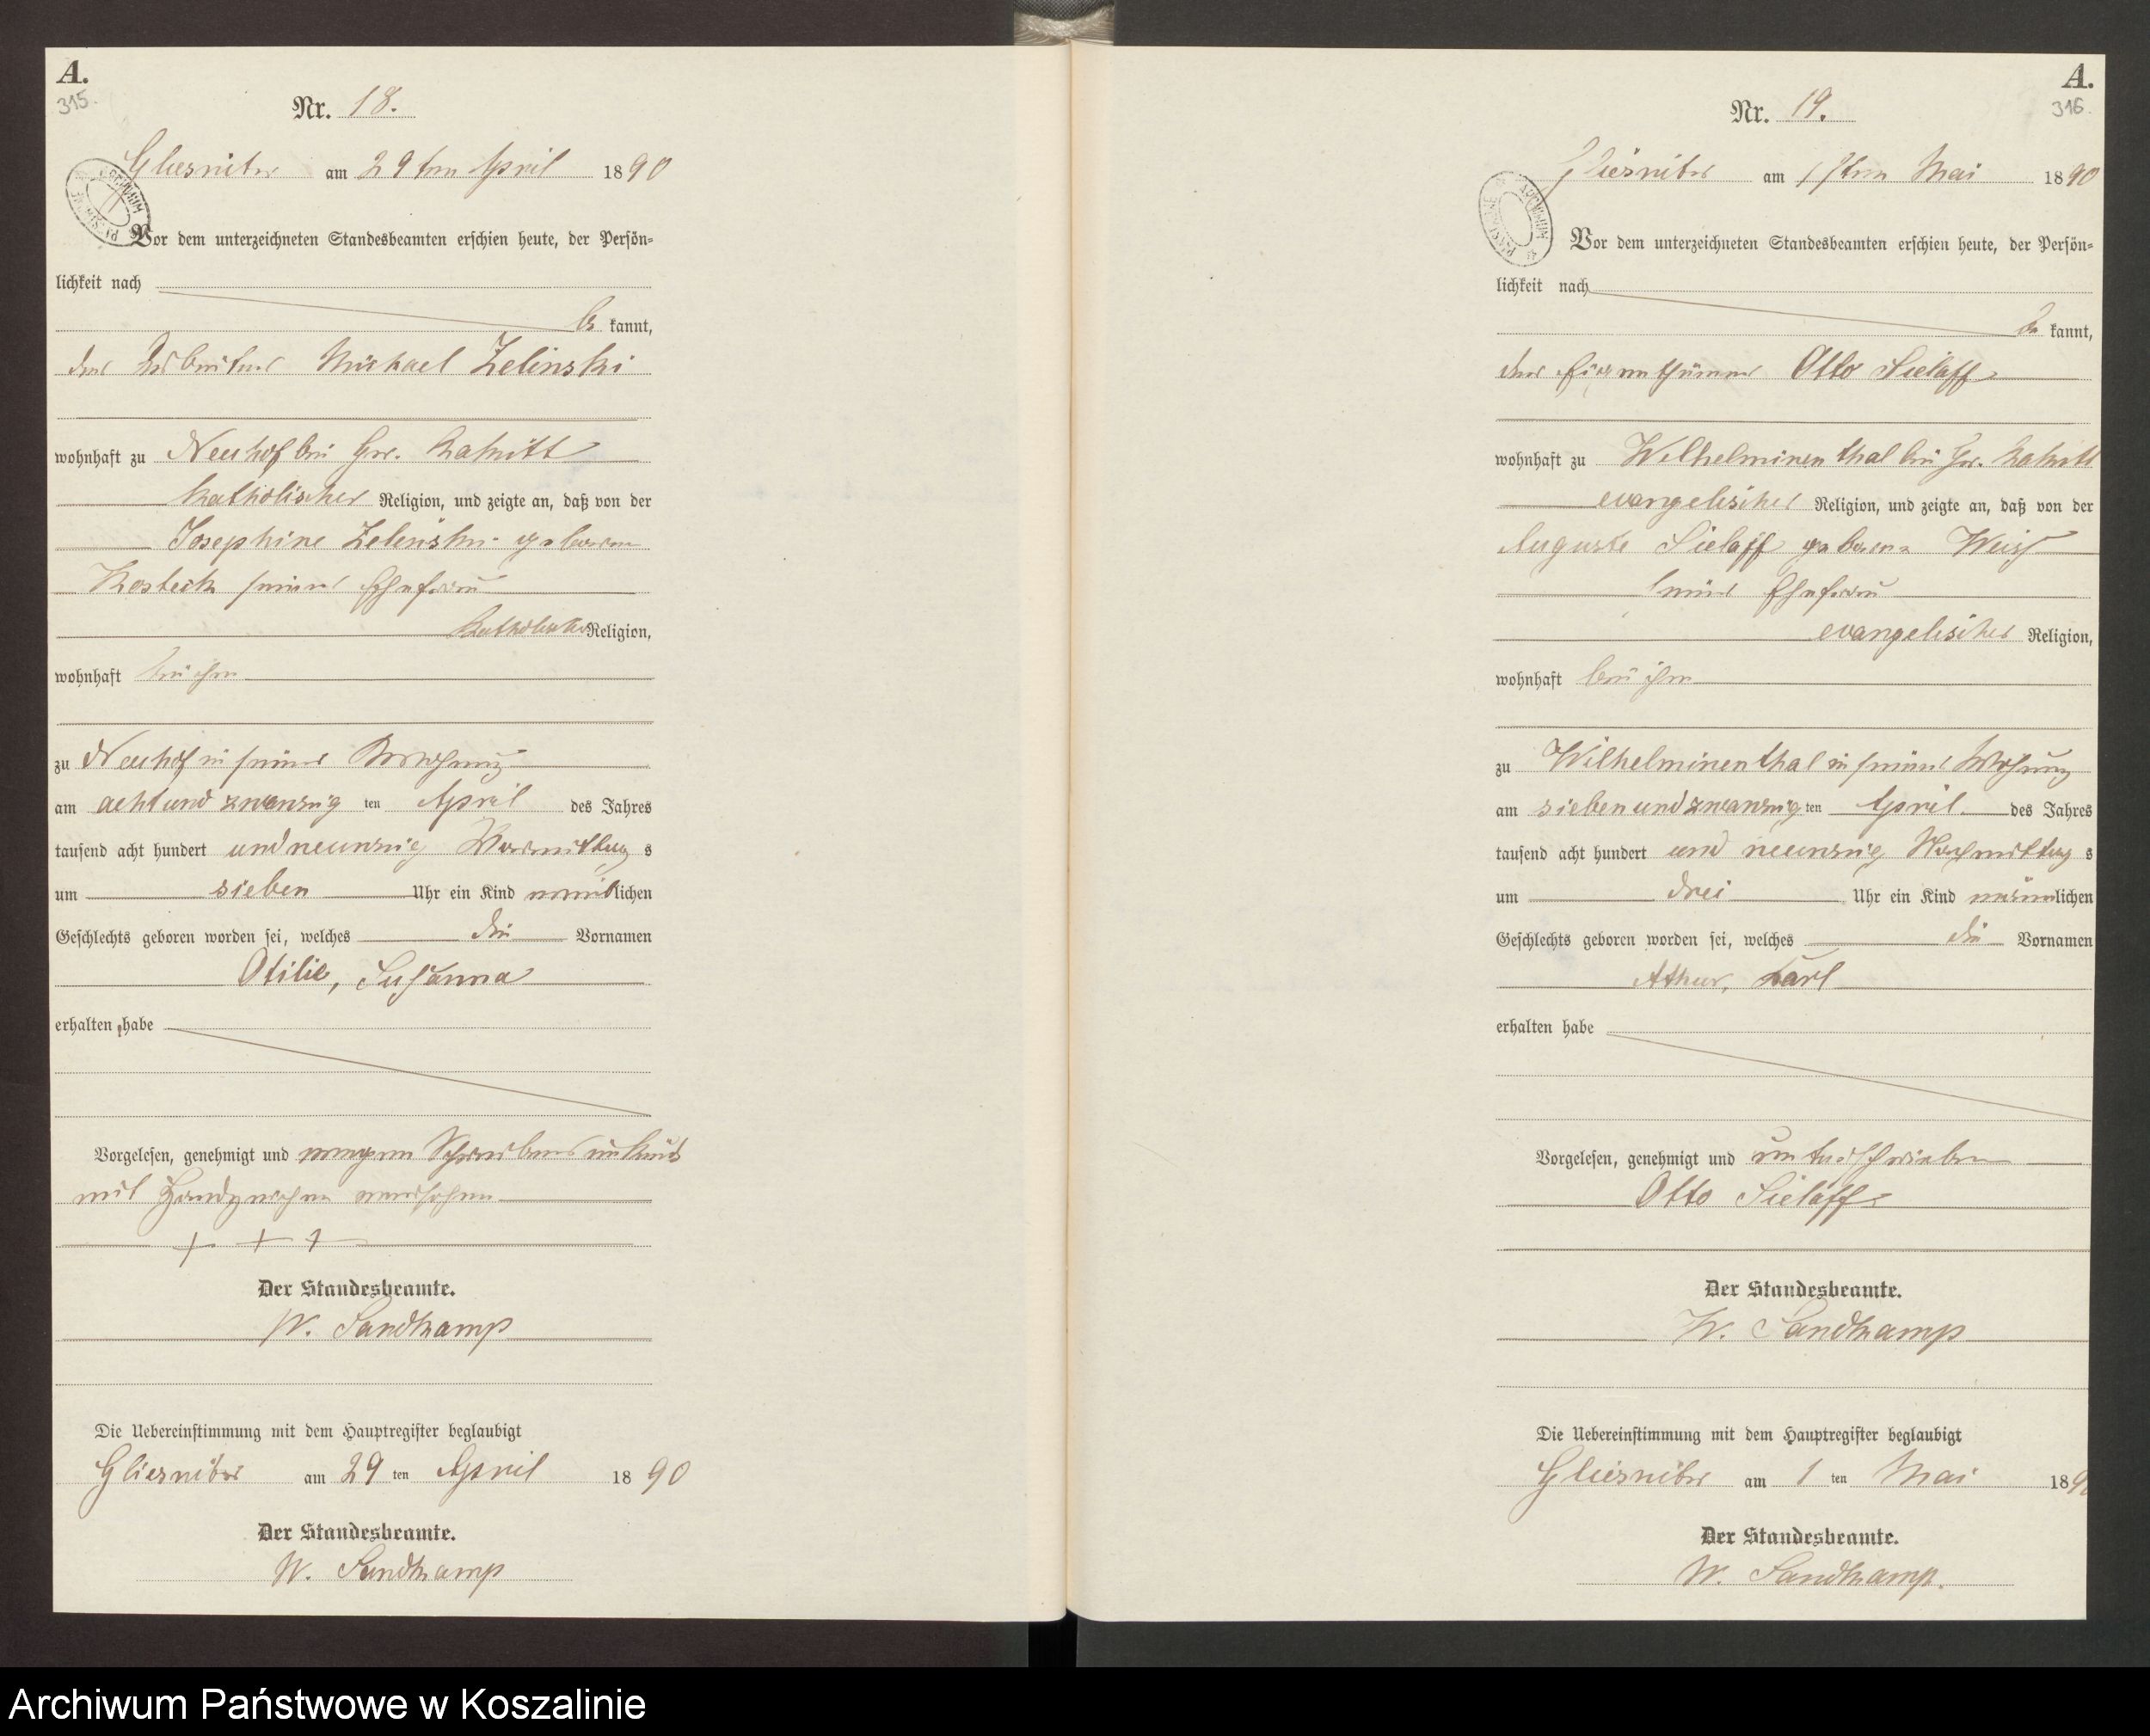 A.
315.
Nr. 18.
Gliesnitz am 29ten April 1890
Vor dem unterzeichneten Standesbeamten erschien heute, der Persön=
lichkeit nach
be kannt,
der Arbeiter Michael Zelinski
wohnhaft zu Neuhof bei Gr.
katholischer Religion, und zeigte an, daß von der
Josephine Zelinski geborene
seiner Ehefrau
katholischer Religion,
wohnhaft bei ihm
zu Neuhof in seiner Wohnung
am acht und zwanzig ten April des Jahres
tausend acht hundert und neunzig Vormittag s
um sieben Uhr ein Kind weiblichen
Geschlechts geboren worden sei, welches die Vornamen
Otilie, Susanna
erhalten habe
Vorgelesen, genehmigt und wegen Schreibens unkund
mit Handzeichen versehen
+ + +
Der Standesbeamte.
W. Sandkamp
Die Uebereinstimmung mit dem Hauptregister beglaubigt
Gliesnitz am 29 ten April 1890
Der Standesbeamte.
W. Sandkamp
A.
316.
Nr. 19.
Gliesnitz am 1ten Mai 1890
Vor dem unterzeichneten Standesbeamten erschien heute, der Persön=
lichkeit nach
be kannt,
der Eigenthümer Otto Sielaff
wohnhaft zu Wilhelminenthal bei Gr.
evangelischer Religion, und zeigte an, daß von der
Auguste Sielaff geborene
seiner Ehefrau
evangelischer Religion,
wohnhaft bei ihm
zu Wilhelminenthal in seiner Wohnung
am sieben und zwanzig ten April des Jahres
tausend acht hundert und neunzig Nachmittag s
um drei Uhr ein Kind männlichen
Geschlechts geboren worden sei, welches die Vornamen
Athur, Karl
erhalten habe
Vorgelesen, genehmigt und unterschrieben
Otto Sielaff
Der Standesbeamte.
W. Sandkamp
Die Uebereinstimmung mit dem Hauptregister beglaubigt
Gliesnitz am 1 ten Mai 1890
Der Standesbeamte.
W. Sandkamp.
Archiwum Państwowe w Koszalinie